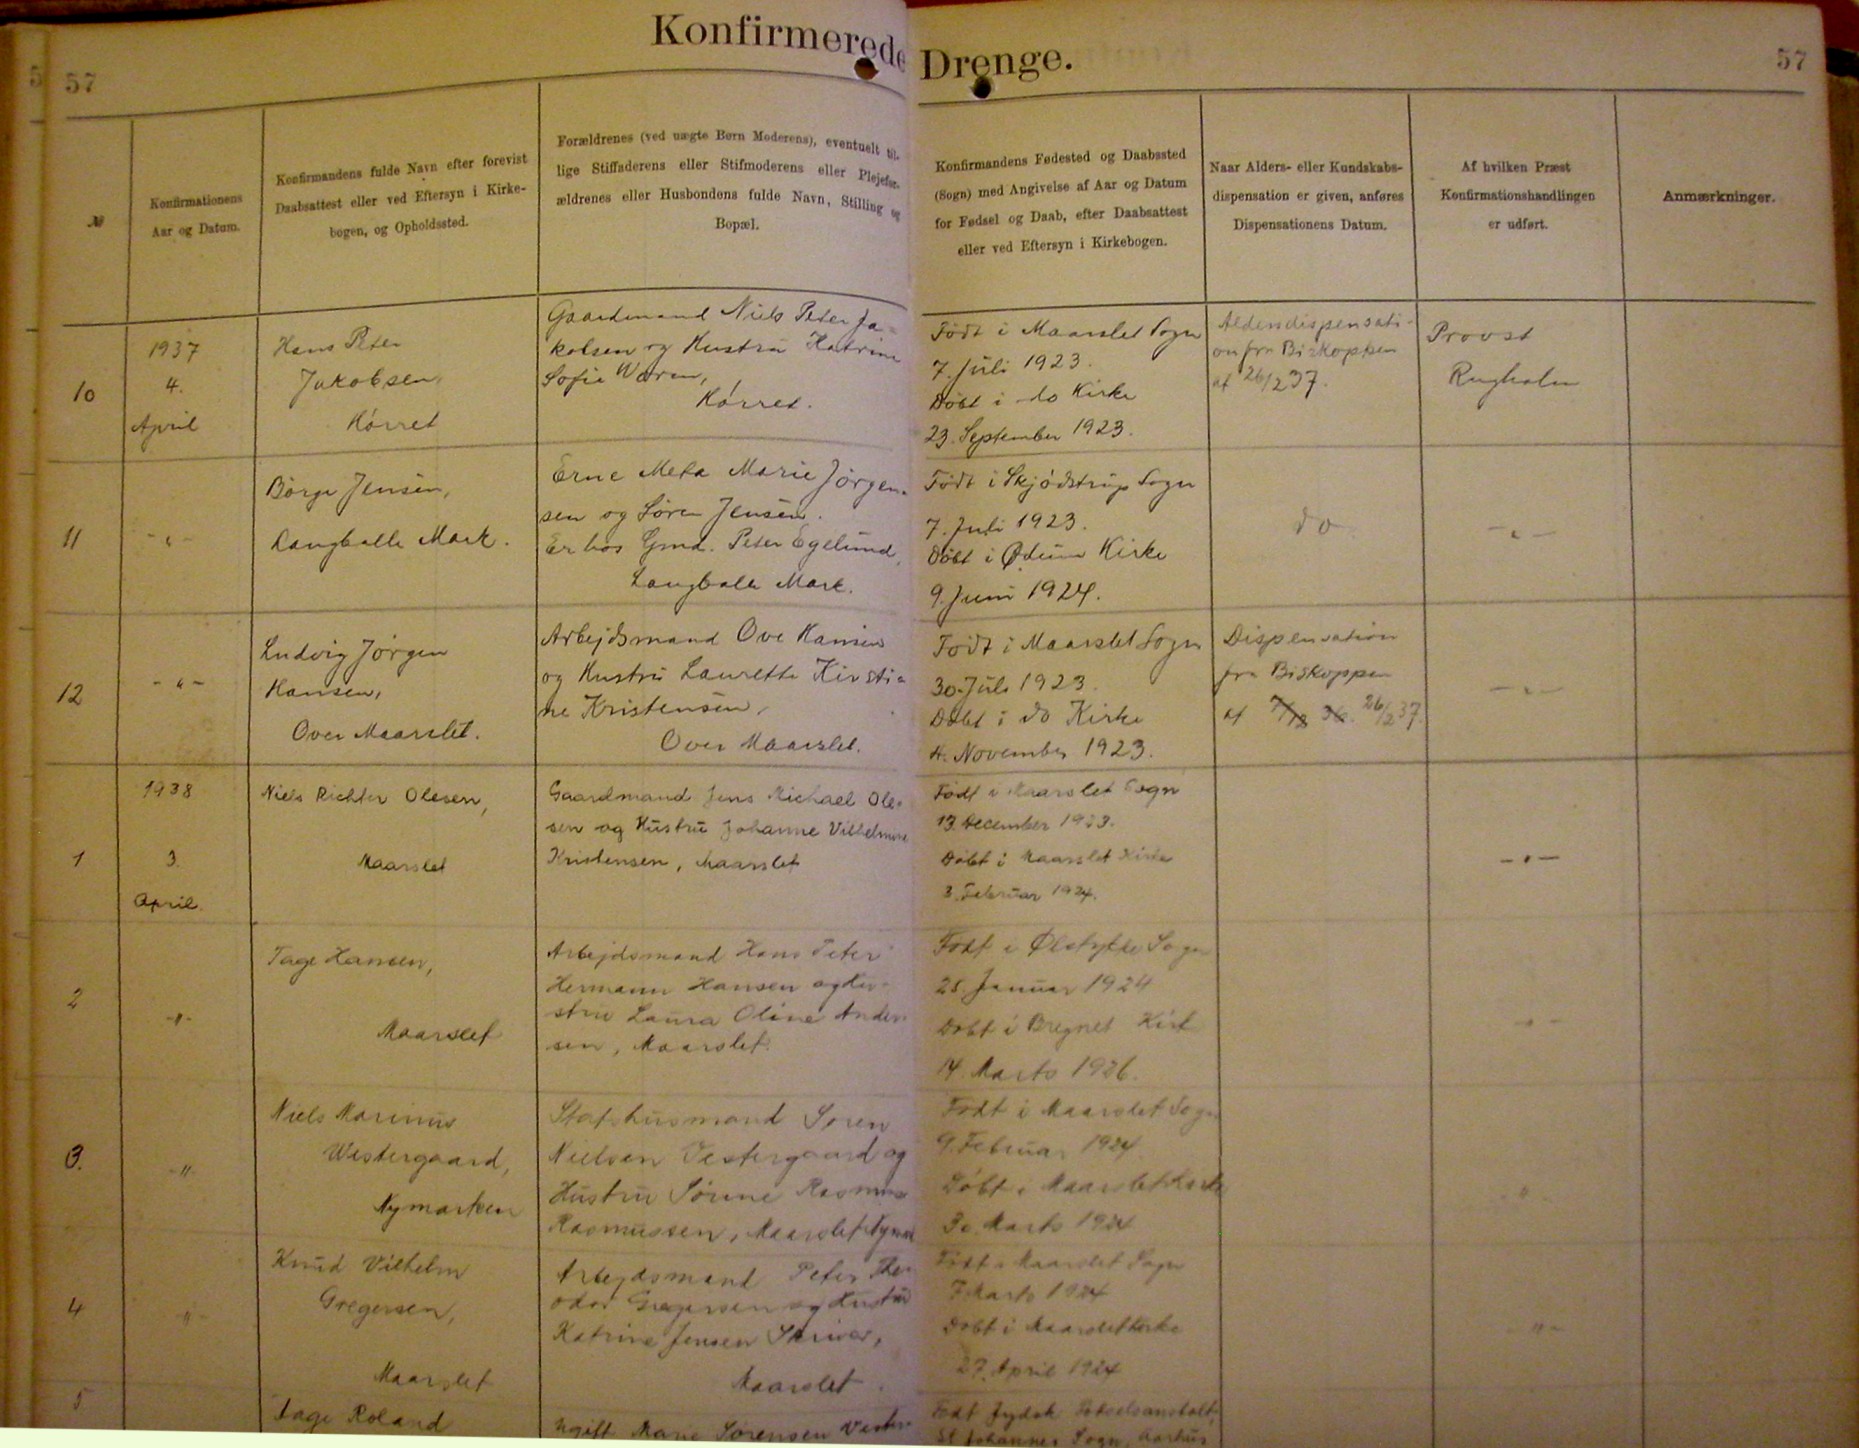 Konfirmerede Drenge.
57
57
№
Konfirmationens
Aar og Datum.
Konfirmandens fulde Navn efter forevist
Daabsattest eller ved Eftersyn i Kirke-
bogen, og Opholdssted.
Forældrenes (ved uægte Børn Moderens), eventuelt til-
lige Stiffaderens eller Stifmoderens eller Plejefor-
ældrenes eller Husbondens fulde Navn, Stilling og
Bopæl.
Konfirmandens Fødested og Daabssted
(Sogn) med Angivelse af Aar og Datum
for Fødsel og Daab, efter Daabsattest
eller ved Eftersyn i Kirkebogen.
Naar Alders- eller Kundskabs-
dispensation er given, anføres
Dispensationens Datum.
Af hvilken Præst
Konfirmationshandlingen
er udført.
Anmærkninger.
10
1937
4.
April
Hans Peter
Jakobsen,
Hørret
Gaardmand Niels Peter Ja-
kobsen og Hustru Katrine
Sofie
Hørret.
Født i Maarslet Sogn
7. Juli 1923.
Døbt i do Kirke
23. September 1923.
Aldersdispensati-
on fra Biskoppen
af 26/2 37.
Provst
Rugholm
11
-"-
Børge Jensen,
Langballe Mark.
Erne Meta Marie Jørgen-
sen og Søren Jensen.
Er hos Gmd. Peter Egelund,
Langballe Mark.
Født i Skjødstrup Sogn
7. Juli 1923.
Døbt i Ødum Kirke
9. Juni 1924.
do
-"-
12
-"-
Ludvig Jørgen
Hansen,
Over Maarslet.
Arbejdsmand Ove Hansen
og Hustru Laurette Kirsti-
ne Kristensen,
Over Maarslet.
Født i Maarslet Sogn
30. Juli 1923.
Døbt i do Kirke
4. November 1923.
Dispensation
fra Biskoppen
af 26/2 37.
-"-
1
1938
3.
April.
Niels Richter Olesen,
Maarslet
Gaardmand Jens Michael Ole-
sen og Hustru Johanne Vilhelmine
Kristensen, Maarslet
Født i Maarslet Sogn
13. December 1923.
Døbt i Maarslet Kirke
3. Februar 1924.
-"-
2
-"-
Tage Hansen,
Maarslet
Arbejdsmand Hans Peter
Hermann Hansen og Hu-
stru Laura Oline Ander-
sen, Maarslet.
Født i Ølstykke Sogn
25. Januar 1924
Døbt i Bregnet Kirk
14. Marts 1926.
-"-
3.
-"-
Niels Marinus
Westergaard,
Nymarken
Statshusmand Søren
Nielsen Vestergaard og
Hustru Sørine Rasmine
Rasmussen, Maarslet Nymark
Født i Maarslet Sogn
9. Februar 1924
Døbt i Maarslet Kirke
30. Marts 1924
-"-
4
-"-
Knud Vilhelm
Gregersen,
Maarslet
Arbejdsmand Peter The-
odor Gregersen og Hustru
Katrine Jensen Skriver,
Maarslet.
Født i Maarslet Sogn
7. Marts 1924
Døbt i Maarslet Kirke
27. April 1924
-"-
5
Aage Roland
Ugift Marie Sørensen Vester-
Født Jydsk Fødselsanstalt,
St. Johannes Sogn, Aarhus